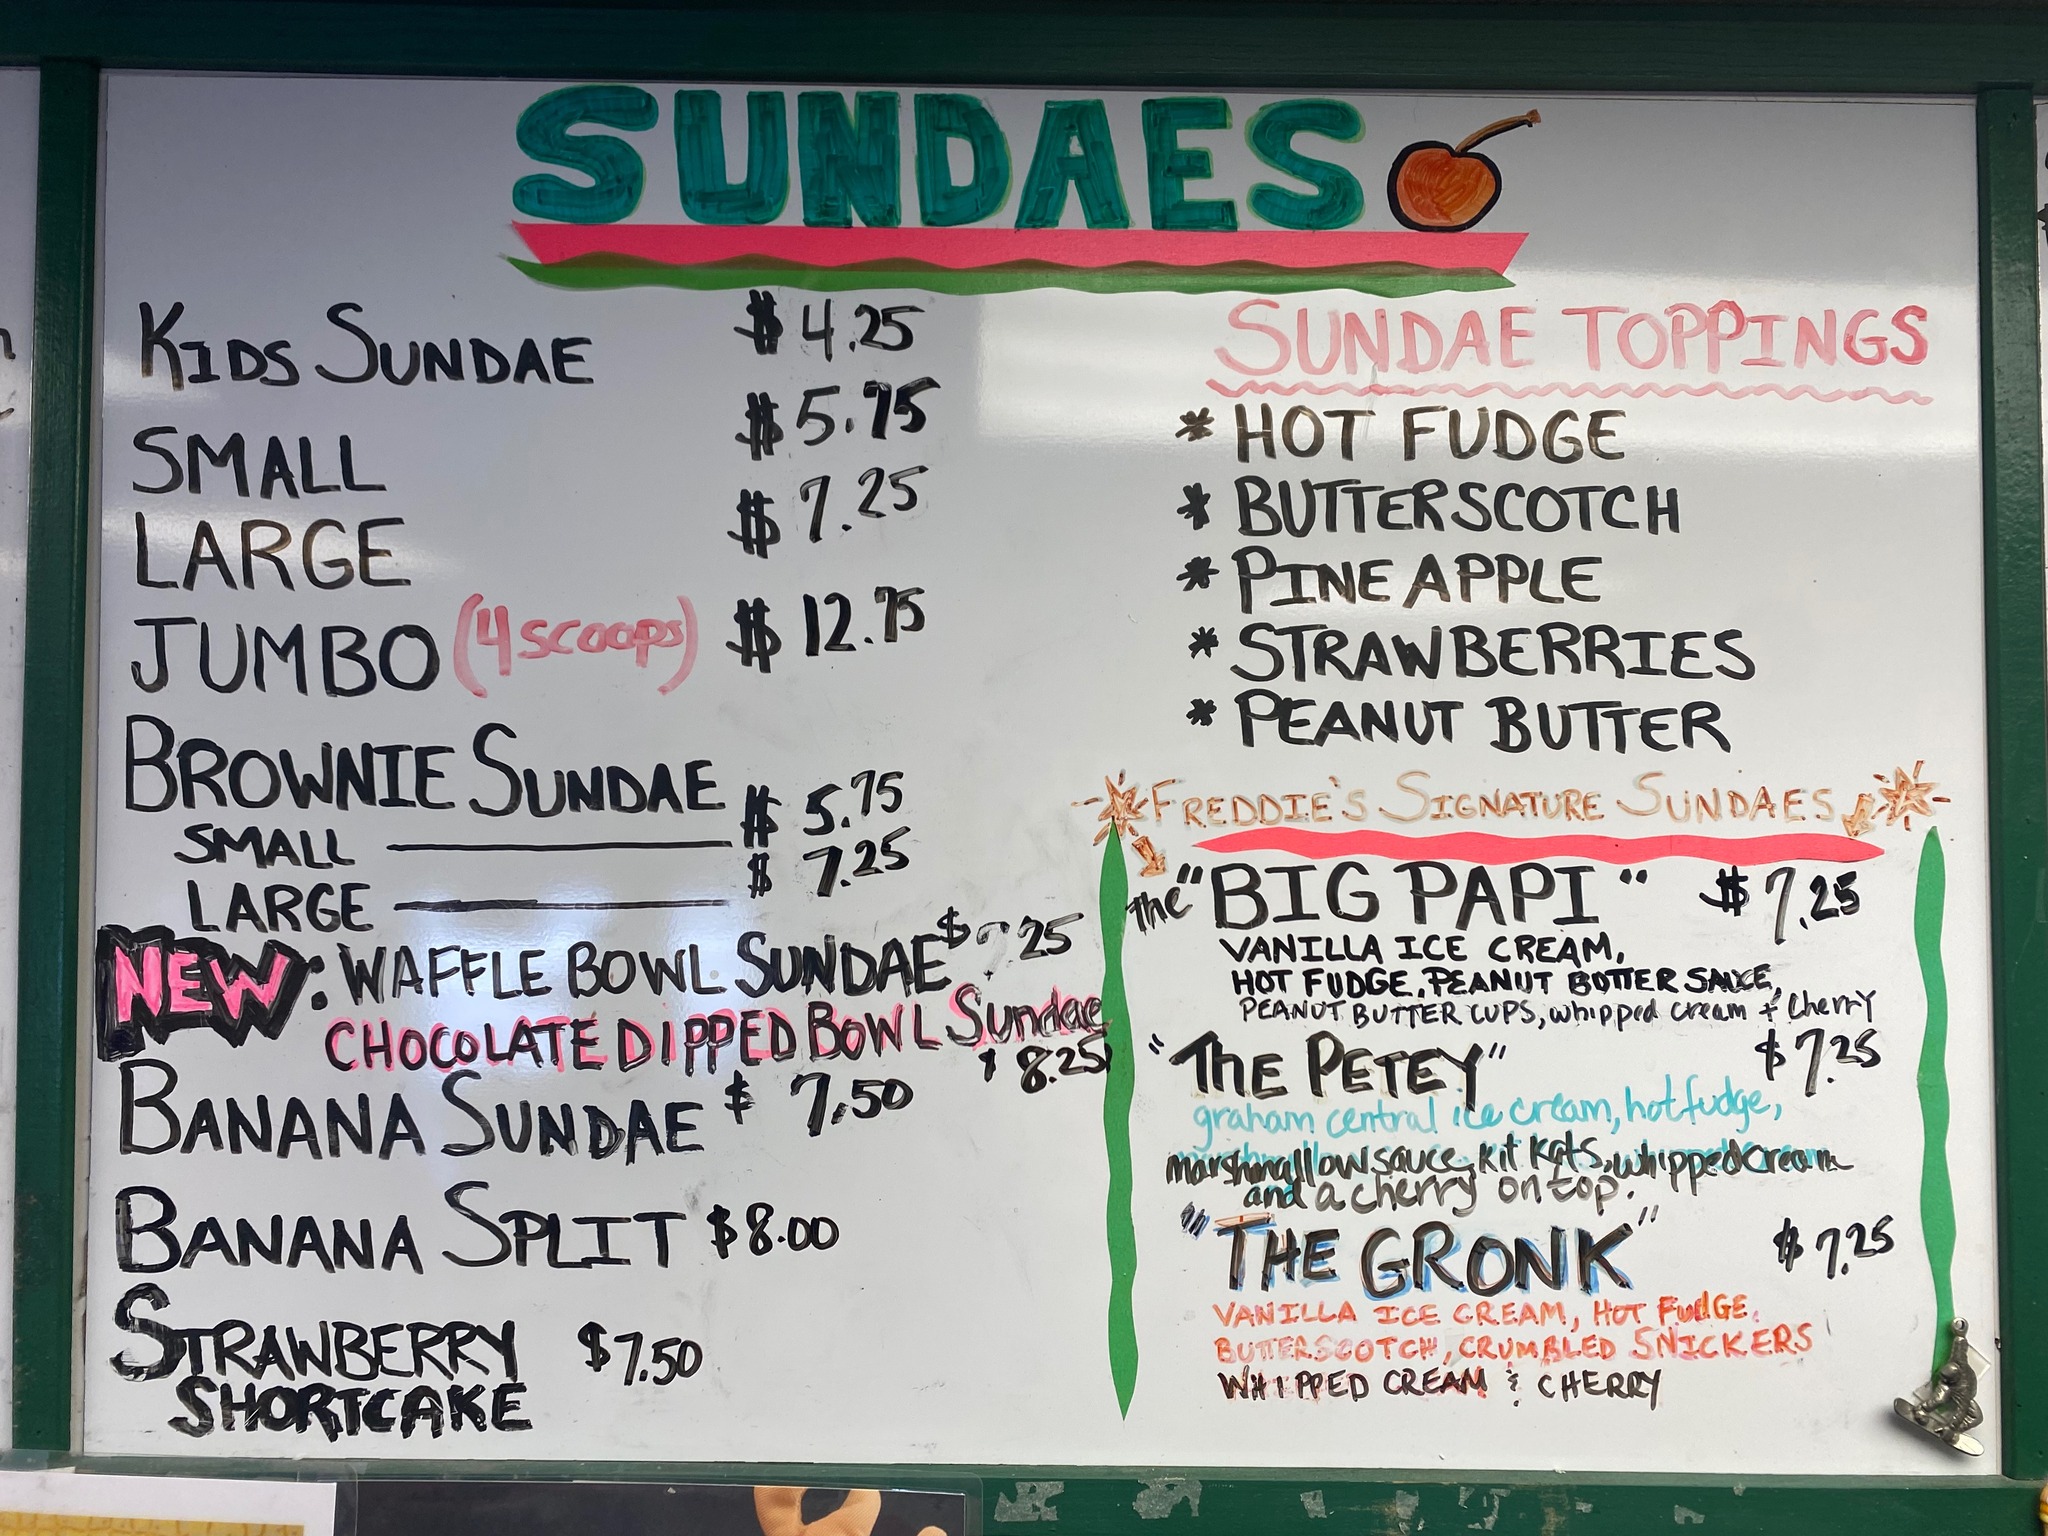 SUNDAES
KIDS SUNDAE $4.25
SMALL $5.75
LARGE $7.25
JUMBO (4 scoops) $12.75
BROWNIE SUNDAE
SMALL $5.75
LARGE $7.25
NEW: WAFFLE BOWL SUNDAE
CHOCOLATE DIPPED BOWL Sundae
$8.25
BANANA SUNDAE $7.50
BANANA SPLIT $8.00
STRAWBERRY $7.50
SHORTCAKE
SUNDAE TOPPINGS
* HOT FUDGE
* BUTTERSCOTCH
* PINEAPPLE
* STRAWBERRIES
* PEANUT BUTTER
FREDDIE'S SIGNATURE SUNDAES
the "BIG PAPI" $7.25
VANILLA ICE CREAM,
HOT FUDGE, PEANUT BUTTER SAUCE,
PEANUT BUTTER CUPS, whipped cream + Cherry
"THE PETEY" $7.25
graham central ice cream, hot fudge,
marshmallow sauce, kit kats, whipped cream
and a cherry on top.
"THE GRONK" $7.25
VANILLA ICE CREAM, HOT FUDGE,
BUTTERSCOTCH, CRUMBLED SNICKERS
WHIPPED CREAM & CHERRY